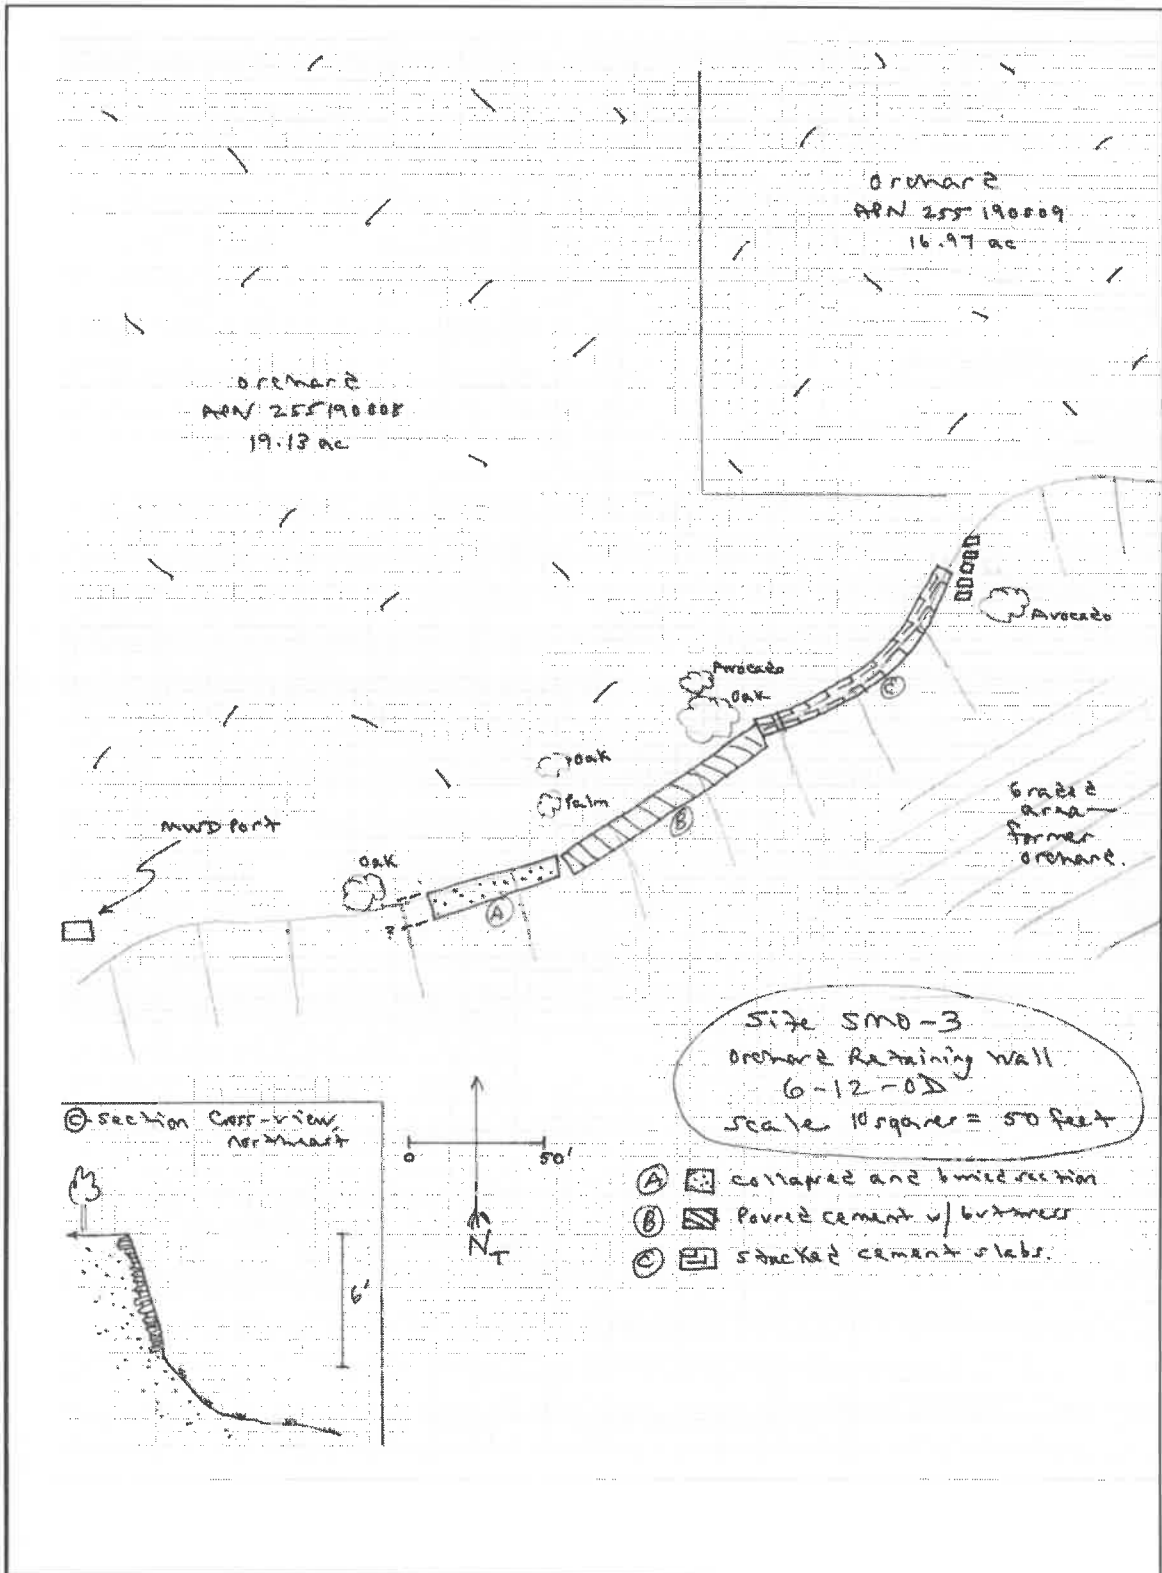 orchard
APN 255 190009
16.97 ac
orchard
APN 255190008
19.13 ac
Avocado
Avocado
Oak
C
Oak
Palm
B
Graded
area—
former
orchard.
MWD Port
Oak
A
?
Site SMO-3
Orchard Retaining Wall
6-12-0D
scale 10 sqares = 50 feet
C-section Cross-view,
northeast
6'
0 50'
NT
A collapsed and buried section
B Poured cement w/ buttress
C stacked cement slabs.